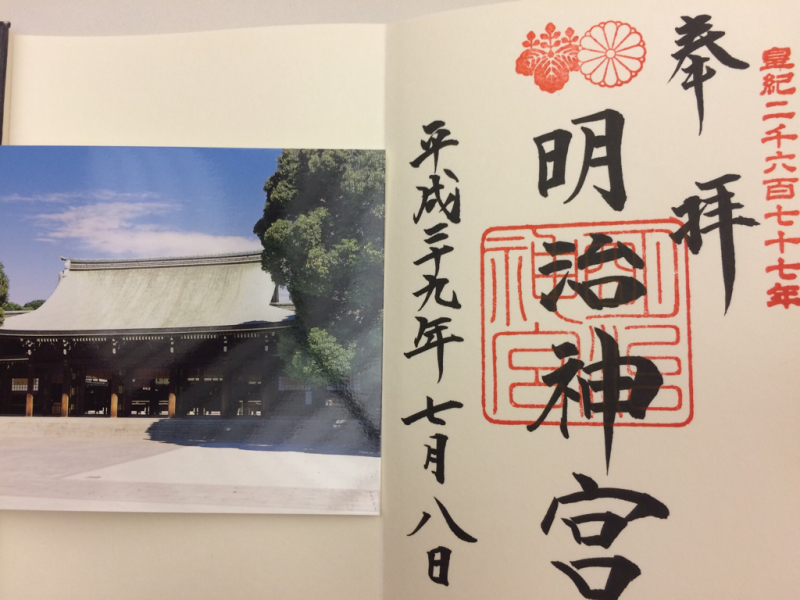 皇紀二千六百七十七年
奉拝
明治神宮
明治神宮
平成二十九年七月八日